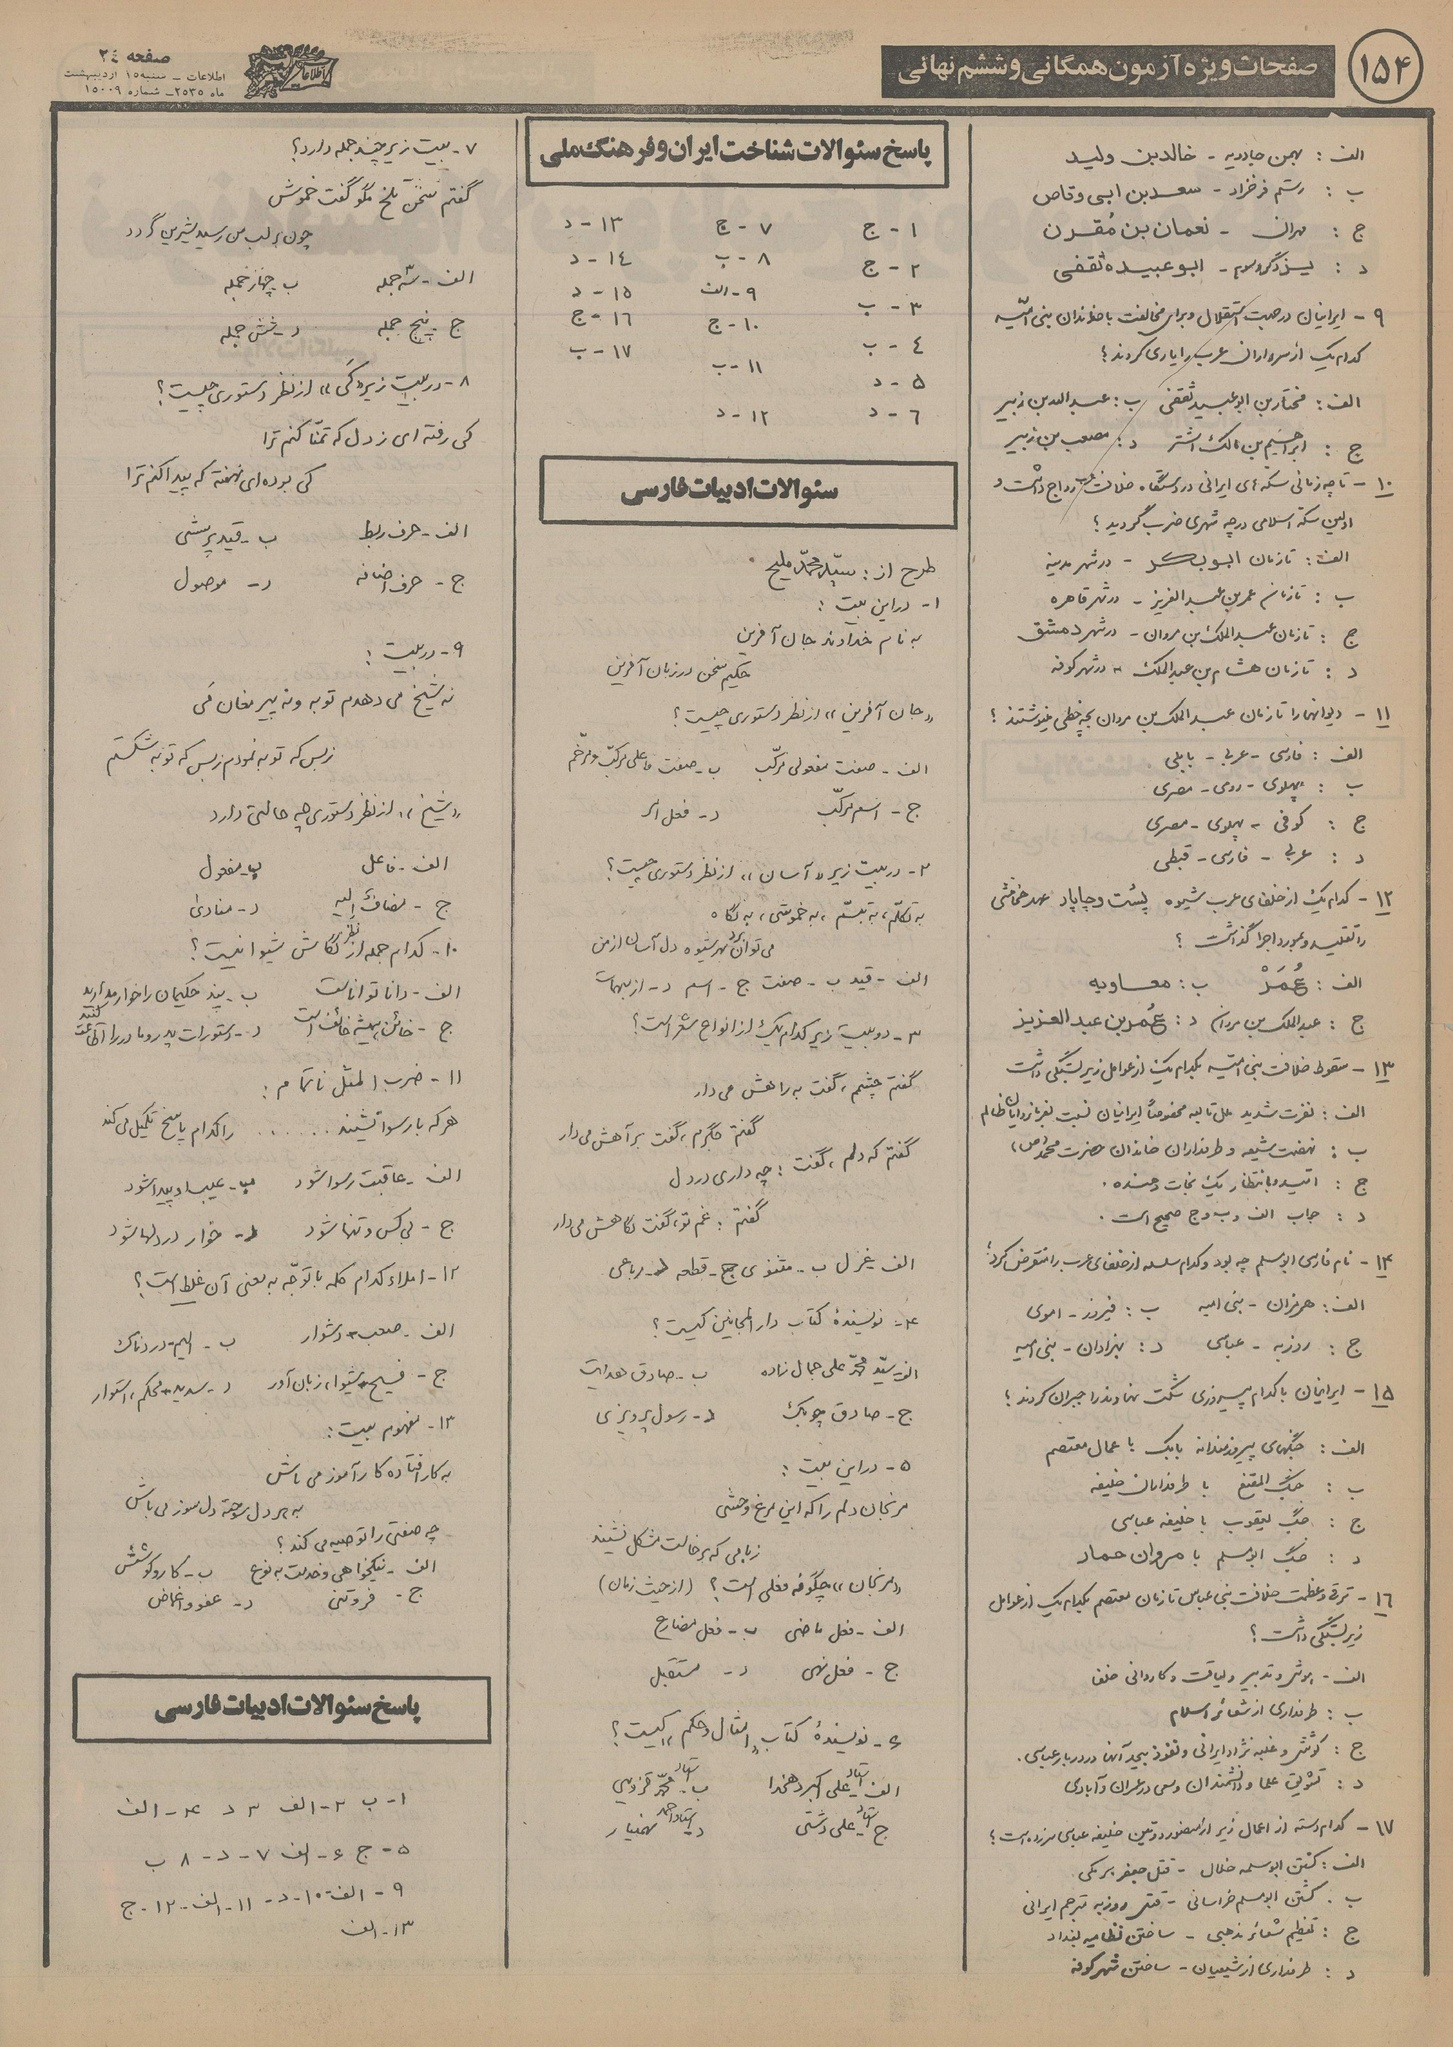 ۱۵۴
صفحات ویژه آزمون همگانی و ششم نهائی
صفحه ۲۴
اطلاعات – شنبه ۱۵ اردیبهشت
ماه ۲۵۳۵ – شماره ۱۵۰۰۹
الف : بهمن جادویه - خالد بن ولید
ب : رستم فرخزاد - سعد بن ابی وقاص
ج : مهران - نعمان بن مُقرن
د : یزدگرد سوم - ابو عبیده ثقفی
۹ - ایرانیان در جهت استقلال و برای مخالفت با خاندان بنی امیّه
کدام یک از سرداران عرب را یاری کردند ؟
الف : مختار بن ابو عبید ثقفی ب : عبدالله بن زبیر
ج : ابراهیم بن مالک اشتر د : مصعب بن زبیر
۱۰ - تا چه زمانی سکه های ایرانی در دستگاه خلافت عرب رواج داشت و
اولین سکه اسلامی در چه شهری ضرب گردید ؟
الف : تا زمان ابوبکر - در شهر مدینه
ب : تا زمان عمر بن عبدالعزیز - در شهر قاهره
ج : تا زمان عبدالملک بن مروان - در شهر دمشق
د : تا زمان هشام بن عبدالملک - در شهر کوفه
۱۱ - دیوانها را تا زمان عبدالملک بن مروان بچه خطی مینوشتند ؟
الف : فارسی - عربی - بابلی
ب : پهلوی - رومی - مصری
ج : کوفی - پهلوی - مصری
د : عربی - فارسی - قبطی
۱۲ - کدام یک از خلفای عرب شیوه پست و چاپار عهد هخامنشی
را تقلید و بمورد اجرا گذاشت ؟
الف : عُمَرْ ب : معاویه
ج : عبدالملک بن مروان د : عُمر بن عبد العزیز
۱۳ - سقوط خلافت بنی امیّه بکدام یک از عوامل زیر بستگی داشت
الف : نفرت شدید ملل تابعه مخصوصاً ایرانیان نسبت بفرمانروایان ظالم
ب : نهضت شیعه و طرفداران خاندان حضرت محمد (ص)
ج : امید و انتظار یک نجات دهنده .
د : جواب الف و ب و ج صحیح است .
۱۴ - نام فارسی ابومسلم چه بود و کدام سلسله از خلفای عرب را منقرض کرد ؟
الف : هرمزان - بنی امیه ب : فیروز - اموی
ج : روزبه - عباسی د : بهزادان - بنی امیه
۱۵ - ایرانیان با کدام پیروزی شکست نهاوند را جبران کردند ؟
الف : جنگهای پیروزمندانه بابک با عمال معتصم
ب : جنگ المقنع با طرفداران خلیفه
ج : جنگ یعقوب با خلیفه عباسی
د : جنگ ابومسلم با مروان حمار
۱۶ - ترقی و عظمت خلافت بنی عباس تا زمان معتصم بکدام یک از عوامل
زیر بستگی داشت ؟
الف - هوش و تدبیر و لیاقت و کاردانی خلفا
ب : طرفداری از شعائر اسلام
ج : کوشش و غلبه نژاد ایرانی و نفوذ بیحد آنها در دربار عباسی .
د : تشویق علما و دانشمندان و سعی در عمران و آبادی
۱۷ - کدام دسته از اعمال زیر از منصور دومین خلیفه عباسی سرزده است ؟
الف : کشتن ابوسلمه خلال - قتل جعفر برمکی
ب . کشتن ابومسلم خراسانی - قتل روزبه مترجم ایرانی
ج : تعظیم شعائر مذهبی - ساختن نظامیه بغداد
د : طرفداری از شیعیان - ساختن شهر کوفه
پاسخ سئوالات شناخت ایران و فرهنگ ملی
۱ - ج ۷ - ج ۱۳ - د
۲ - ج ۸ - ب ۱۴ - د
۳ - ب ۹ - الف ۱۵ - د
۴ - ب ۱۰ - ج ۱۶ - ج
۵ - د ۱۱ - ب ۱۷ - ب
۶ - د ۱۲ - د
سئوالات ادبیات فارسی
طرح از : سیّد محمّد ملیح
۱ - در این بیت :
به نام خداوند جان آفرین
حکیم سخن در زبان آفرین
«جان آفرین» از نظر دستوری چیست ؟
الف - صفت مفعولی مرکّب ب - صفت فاعلی مرکّب مرخّم
ج - اسم مرکّب د - فعل امر
۲ - در بیت زیر «آسان» از نظر دستوری چیست ؟
به تکلّم ، به تبسّم ، به خموشی ، به نگاه
می توان برد بهر شیوه دل آسان از من
الف - قید ب - صفت ج - اسم د - از مبهمات
۳ - دو بیت زیر کدام یک از انواع شعر است ؟
گفتم چشمم ، گفت به راهش می دار
گفتم جگرم ، گفت بر آهش می دار
گفتم که دلم ، گفت : چه داری در دل
گفتم : غم تو ، گفت نگاهش می دار
الف - غزل ب - مثنوی ج - قطعه د - رباعی
۴ - نویسندهٔ کتاب دارالمجانین کیست ؟
الف - سیّد محمّد علی جمال زاده ب - صادق هدایت
ج - صادق چوبک د - رسول پرویزی
۵ - در این بیت :
مرنجان دلم را که این مرغ وحشی
ز بامی که برخاست مشکل نشیند
«مرنجان» چگونه فعلی است ؟ (از حیث زمان)
الف - فعل ماضی ب - فعل مضارع
ج - فعل نهی د - مستقبل
۶ - نویسندهٔ کتاب «امثال و حکم» کیست ؟
الف - استاد علی اکبر دهخدا ب - استاد محمّد قزوینی
ج - استاد علی دشتی د - استاد احمد بهمنیار
۷ - بیت زیر چند جمله دارد ؟
گفتم سخن تلخ مگو گفت خموش
چون بر لب من رسید شیرین گردد
الف - سه جمله ب - چهار جمله
ج - پنج جمله د - شش جمله
۸ - در بیت زیر «کی» از نظر دستوری چیست ؟
کی رفته ای ز دل که تمنّا کنم ترا
کی بوده ای نهفته که پیدا کنم ترا
الف - حرف ربط ب - قید پرسشی
ج - حرف اضافه د - موصول
۹ - در بیت :
نه شیخ می دهدم توبه و نه پیر مغان می
ز بس که توبه نمودم ز بس که توبه شکستم
«شیخ» از نظر دستوری چه حالتی دارد
الف - فاعل ب - مفعول
ج - مضاف الیه د - منادی
۱۰ - کدام جمله از نظر نگارش شیوا نیست ؟
الف - دانا تواناست ب - پند حکیمان را خوار مدارید
ج - خائن همیشه خائف است د - دستورات پدر و مادر را اطاعت کنید
۱۱ - ضرب المثل ناتمام :
هر که با رسوا نشیند . . . . . . . را کدام پاسخ تکمیل می کند
الف - عاقبت رسوا شود ب - عیب او پیدا شود
ج - بی کس و تنها شود د - خوار در دلها شود
۱۲ - املاء کدام کلمه با توجّه به معنی آن غلط است ؟
الف - صعب = دشوار ب - الیم = دردناک
ج - فسیح = شیوا ، زبان آور د - سدید = محکم ، استوار
۱۳ - مفهوم بیت :
به کار افتاده کارآموز می باش
به هر دل سوخته دل سوز می باش
چه صفتی را توصیه می کند ؟
الف - نیکخواهی و خدمت به نوع ب - کار و کوشش
ج - فروتنی د - عفو و اغماض
پاسخ سئوالات ادبیات فارسی
۱ - ب ۲ - الف ۳ د ۴ - الف
۵ - ج ۶ - الف ۷ - د - ۸ ب
۹ - الف - ۱۰ - د - ۱۱ - الف - ۱۲ - ج
۱۳ - الف